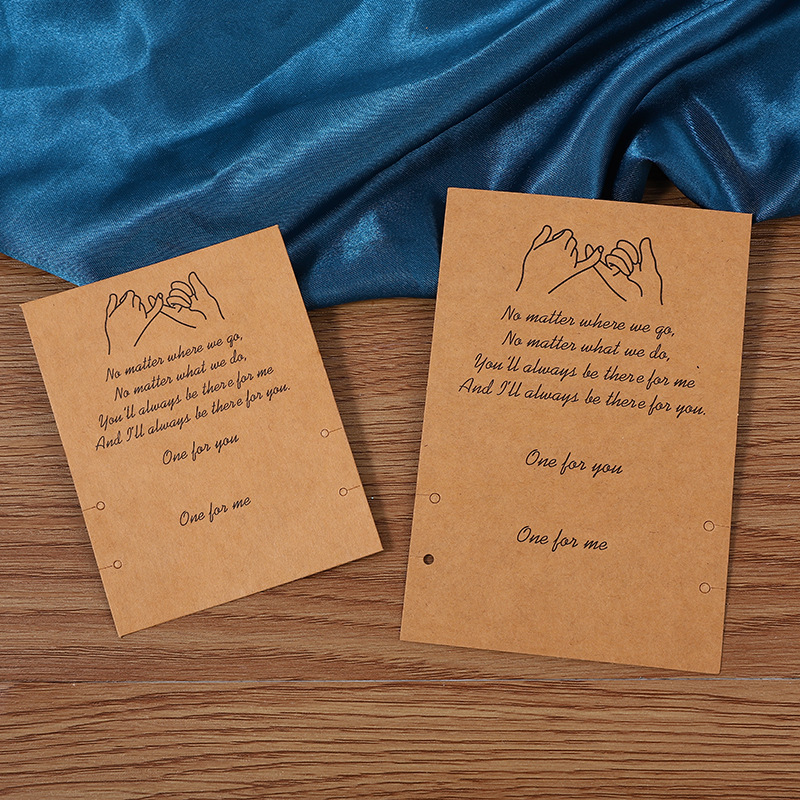 No matter where we go,
No matter what we do,
You'll always be there for me
And I'll always be there for you.
One for you
One for me
No matter where we go,
No matter what we do,
You'll always be there for me
And I'll always be there for you.
One for you
One for me